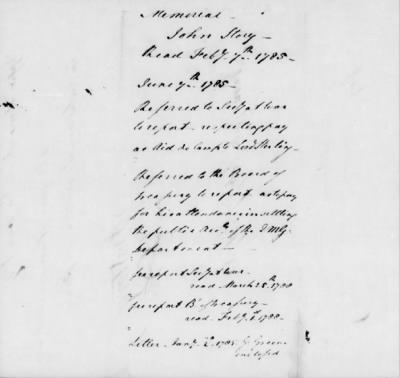 Memorial
John Story
Read Feby. 7th. 1785
June 7th. 1785
Referred to Secy at War
to report - respecting pay
as Aid de Camp to Lord Sterling
Referred to the Board of
treasury to report as to pay
for his attendance in settling
the public Accts. of the Q M G
department
see report Secy at War
read March 25th. 1788
see report Bd. of treasury
read Feby 1788
Letter - Jany 2d. 1785 G Green
enclosed